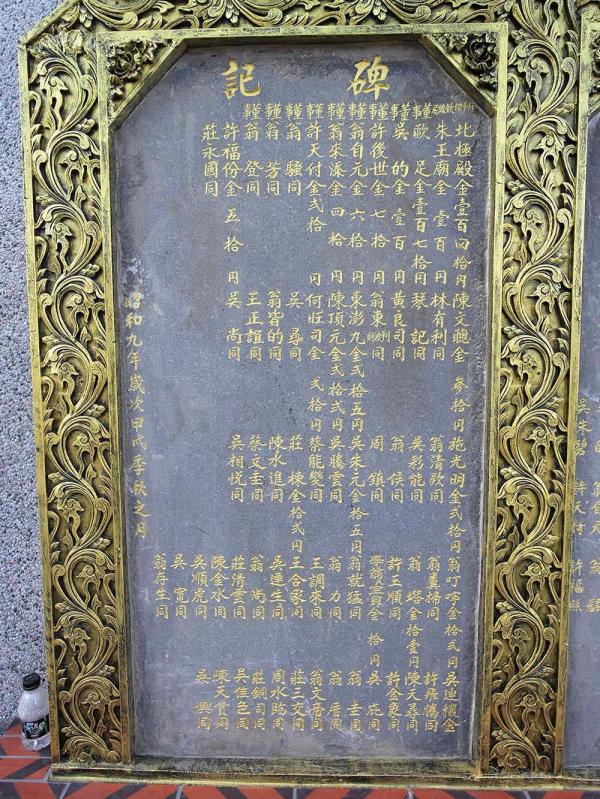 碑記
北極殿金壹百四拾円 陳文聰金參拾円 施光明金弍拾円 翁叮嚀金拾弍円 吳連機金
朱王廟金壹百円 林有利同 翁清欵同 翁冀掃同 許飛騰同
董事歐足金壹百七拾円 琴記同 吳彩能同 翁塔金拾壹円 陳天尋同
董事吳的金壹百円 黃良司同 翁侯同 許王順同 許金象同
董事許後世金七拾円 翁東同 周鎮同 金拾円 吳庇同
董事翁自元金六拾円 東澎九金弍拾五円 吳朱元金拾五円 翁就猛同 翁圭同
董事翁來添金四拾円 陳頂元金弍拾弍円 吳騰雲同 翁力同 翁厝同
董事許天付金弍拾円 何旺司金弍拾円 蔡能變同 王調來同 翁文番同
董事翁騷同 吳尋同 莊棟金拾弍円 王合家同 莊三交同
董事翁芳同 翁皆的同 陳水進同 吳連生同 周水點同
董事翁登同 王正誼同 蔡文圭同 翁尚同 莊銅司同
許福份金五拾円 吳尚同 吳相悅同 莊清雲同 吳佳色同
莊永國同 陳金水同 陳天賞同
吳順虎同 吳興同
吳寬同
翁存生同
昭和九年歲次甲戌季秋之月